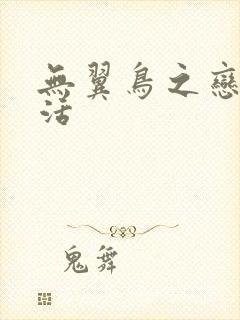 無翼鳥之戀
活
鬼舞